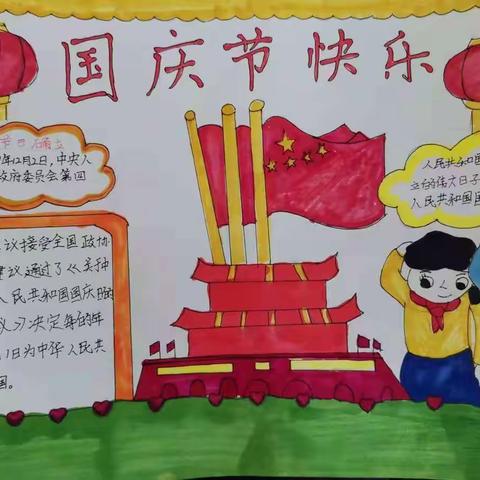 国庆节快乐
节日确立
年12月2日,中央人
政府委员会第四
议接受全国政协
建议通过了《关于
人民共和国国庆日的
议》决定每年的年
1日为中华人民共
国。
人民共和国
立的伟大日子
人民共和国国